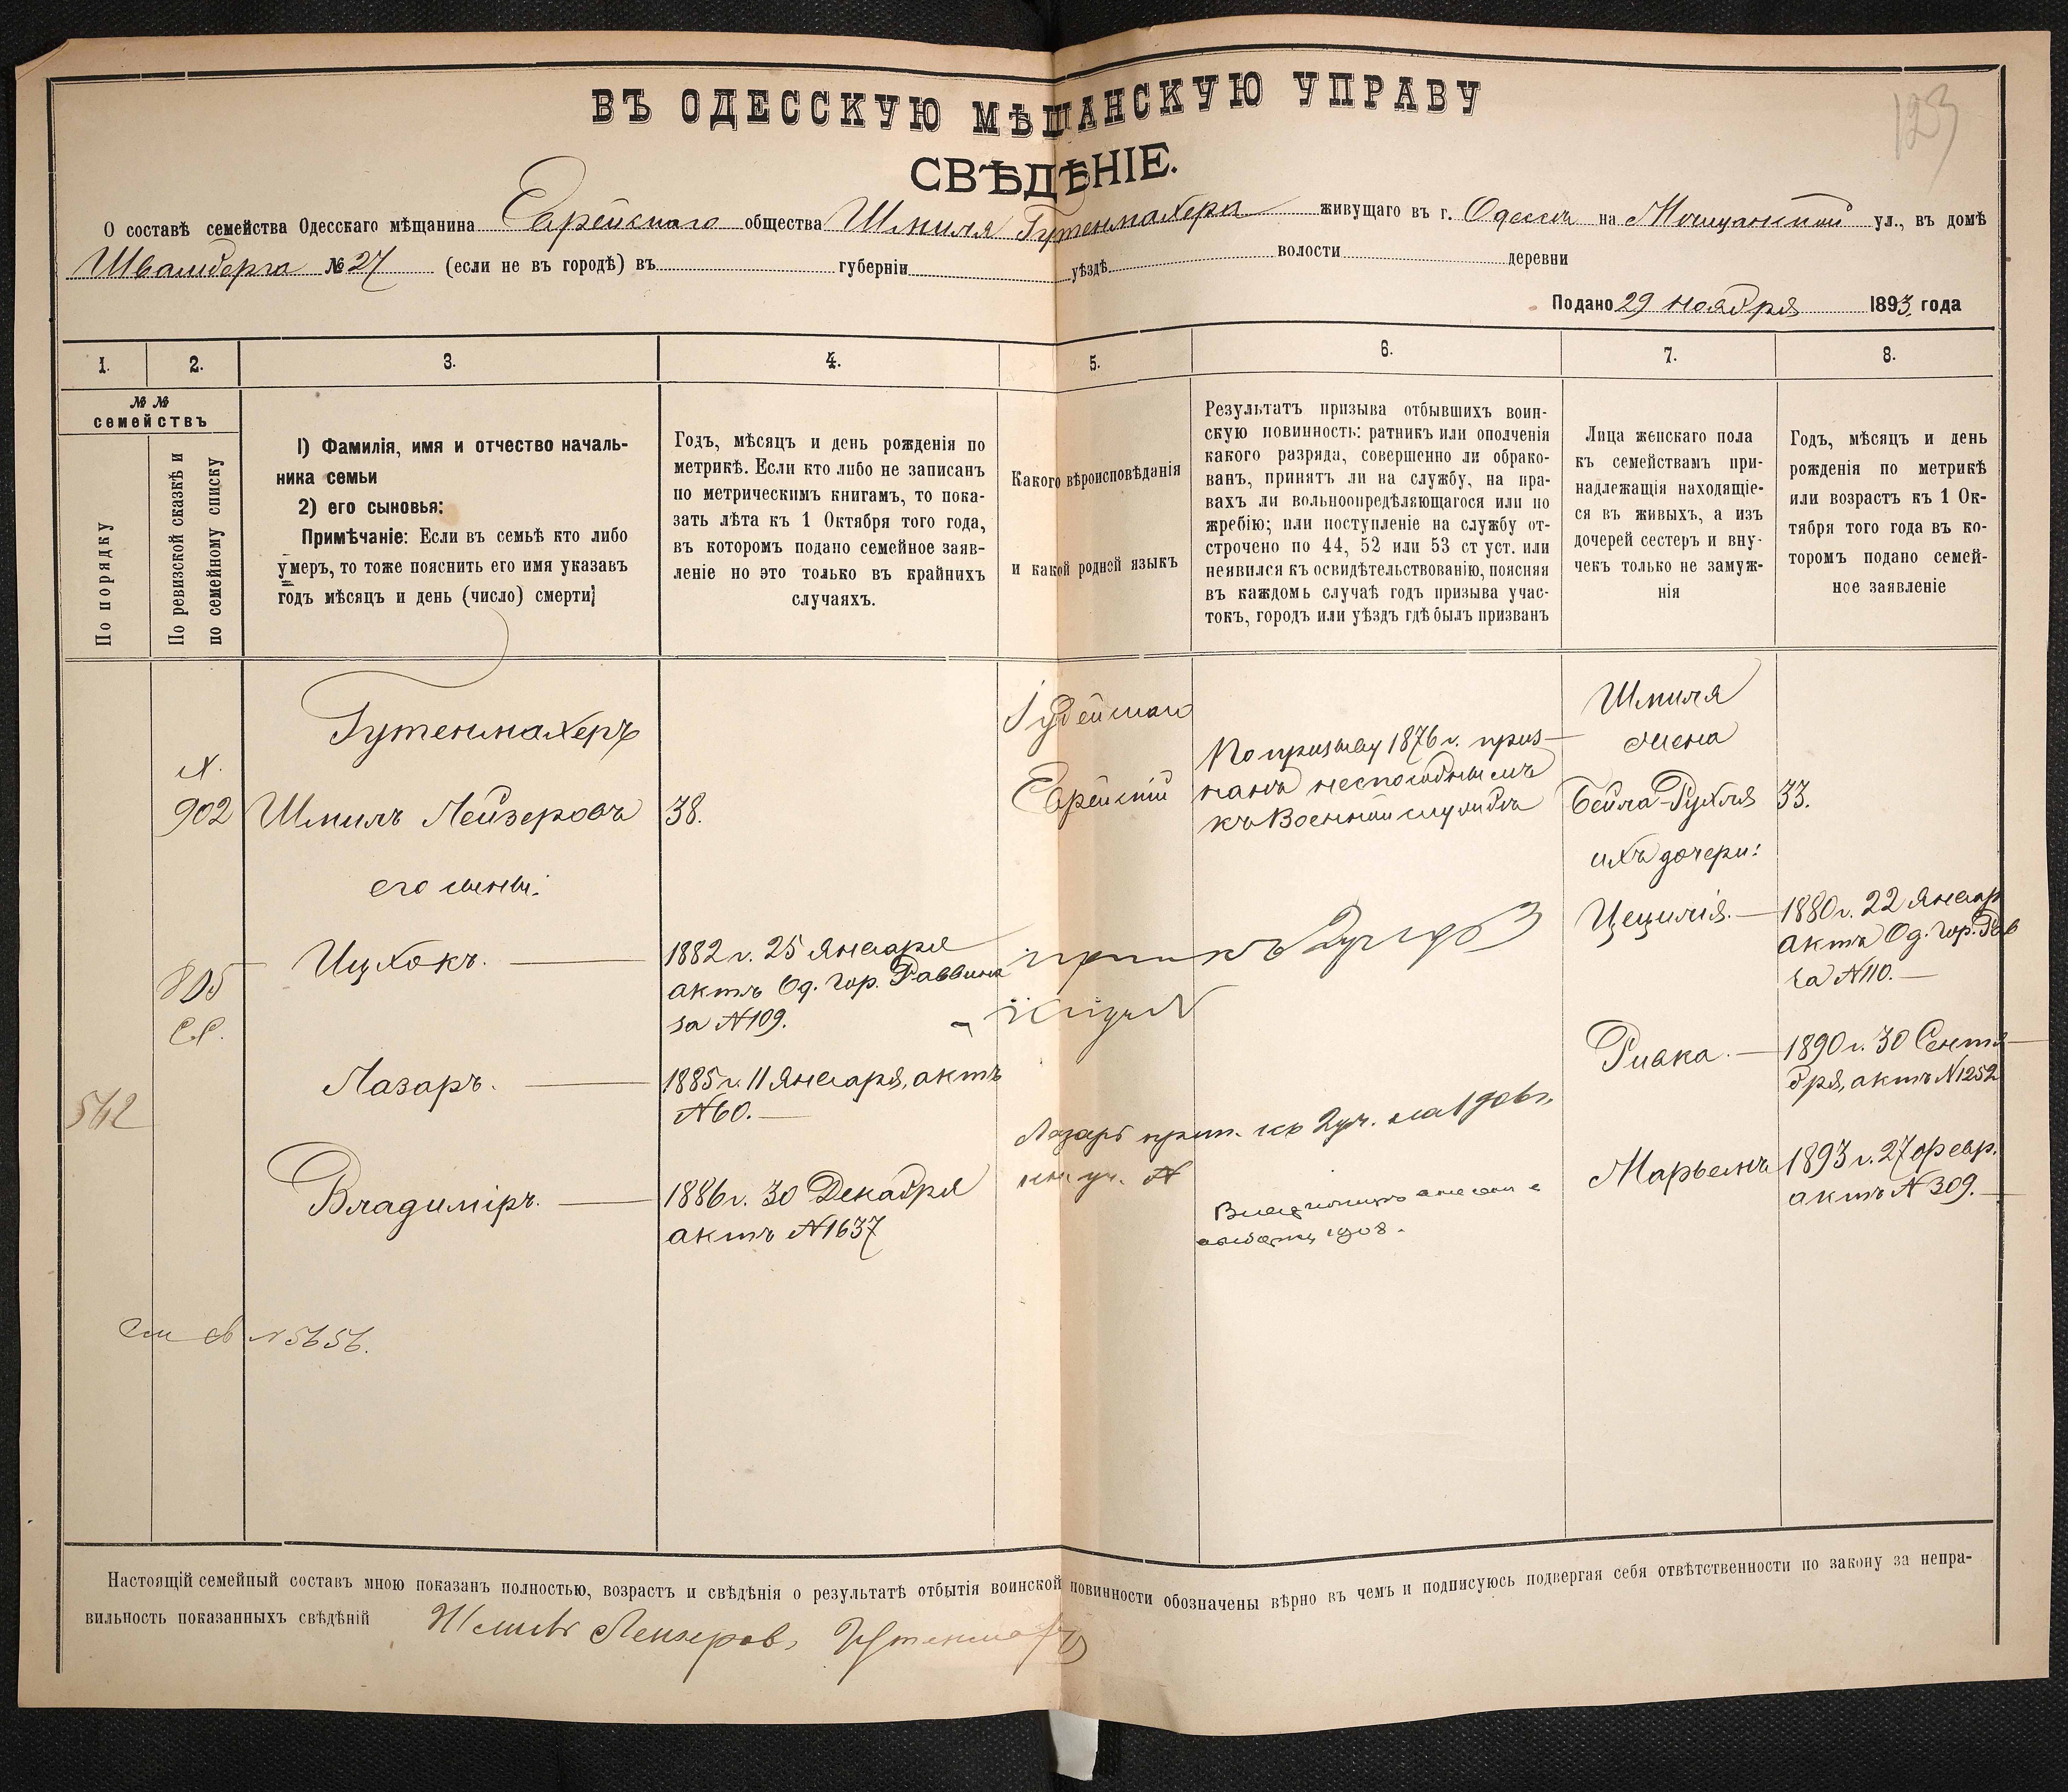 123
ВЪ ОДЕССКУЮ МѢЩАНСКУЮ УПРАВУ
СВѢДѢНІЕ.
О составѣ семейства Одесскаго мѣщанина Еврейскаго общества Шмиля Гутенмахера живущаго въ г. Одессѣ на ул., въ домѣ
№ 27 (если не въ городѣ) въ губерніи уѣздѣ волости деревни
Подано 29 ноября 1893 года
1. 2. 3. 4. 5. 6. 7. 8.
№ №
семействъ
По порядку
По ревизской сказкѣ и
по семейному списку
1) Фамилія, имя и отчество началь-
ника семьи
2) его сыновья:
Примѣчаніе: Если въ семьѣ кто либо
умеръ, то тоже пояснить его имя указавъ
годъ мѣсяцъ и день (число) смерти;
Годъ, мѣсяцъ и день рожденія по
метрикѣ. Если кто либо не записанъ
по метрическимъ книгамъ, то пока-
зать лѣта къ 1 Октября того года,
въ которомъ подано семейное заяв-
леніе но это только въ крайнихъ
случаяхъ.
Какого вѣроисповѣданія
и какой родной языкъ
Результатъ призыва отбывшихъ воин-
скую повинность: ратникъ или ополченія
какого разряда, совершенно ли обрако-
ванъ, принятъ ли на службу, на пра-
вахъ ли вольноопредѣляющагося или по
жребію; или поступленіе на службу от-
строчено по 44, 52 или 53 ст уст. или
неявился къ освидѣтельствованію, поясняя
въ каждомъ случаѣ годъ призыва учас-
токъ, городъ или уѣздъ гдѣ былъ призванъ
Лица женскаго пола
къ семействамъ при-
надлежащія находящіе-
ся въ живыхъ, а изъ
дочерей сестеръ и вну-
чекъ только не замуж-
нія
Годъ, мѣсяцъ и день
рожденія по метрикѣ
или возрастъ къ 1 Ок-
тября того года въ ко-
торомъ подано семей-
ное заявленіе
Гутенмахеръ
902 Шмиль Лейзеровъ 38.
Іудейскаго
Еврейскій
По призыву 1876 г. приз-
нанъ неспособнымъ
къ Военной службѣ
Шмиля
жена
Бейла-Рухля 33.
ихъ дочери:
его сыны:
805
Ицхокъ.
1882 г. 25 Января
актъ Од. гор. Раввина
за №109.
Цецилія.
1880 г. 22 Январ
актъ Од. гор. Рав
за №110.
542
Лазарь.
1885 г. 11 Января, актъ
№60.
Лазарь прип. къ 2 уч.
Ривка.
1890 г. 30 Сентя
бря, актъ №1252
Владиміръ.
1886 г. 30 Декабря
актъ №1637
1908.
Марьемъ
1893 г. 27 февр.
актъ №309.
№5656.
Настоящій семейный составъ мною показанъ полностью, возрастъ и свѣдѣнія о результатѣ отбытія воинской повинности обозначены вѣрно въ чемъ и подписуюсь подвергая себя отвѣтственности по закону за непра-
вильность показанныхъ свѣдѣній Шмиль Лейзеровъ Гутенмахеръ